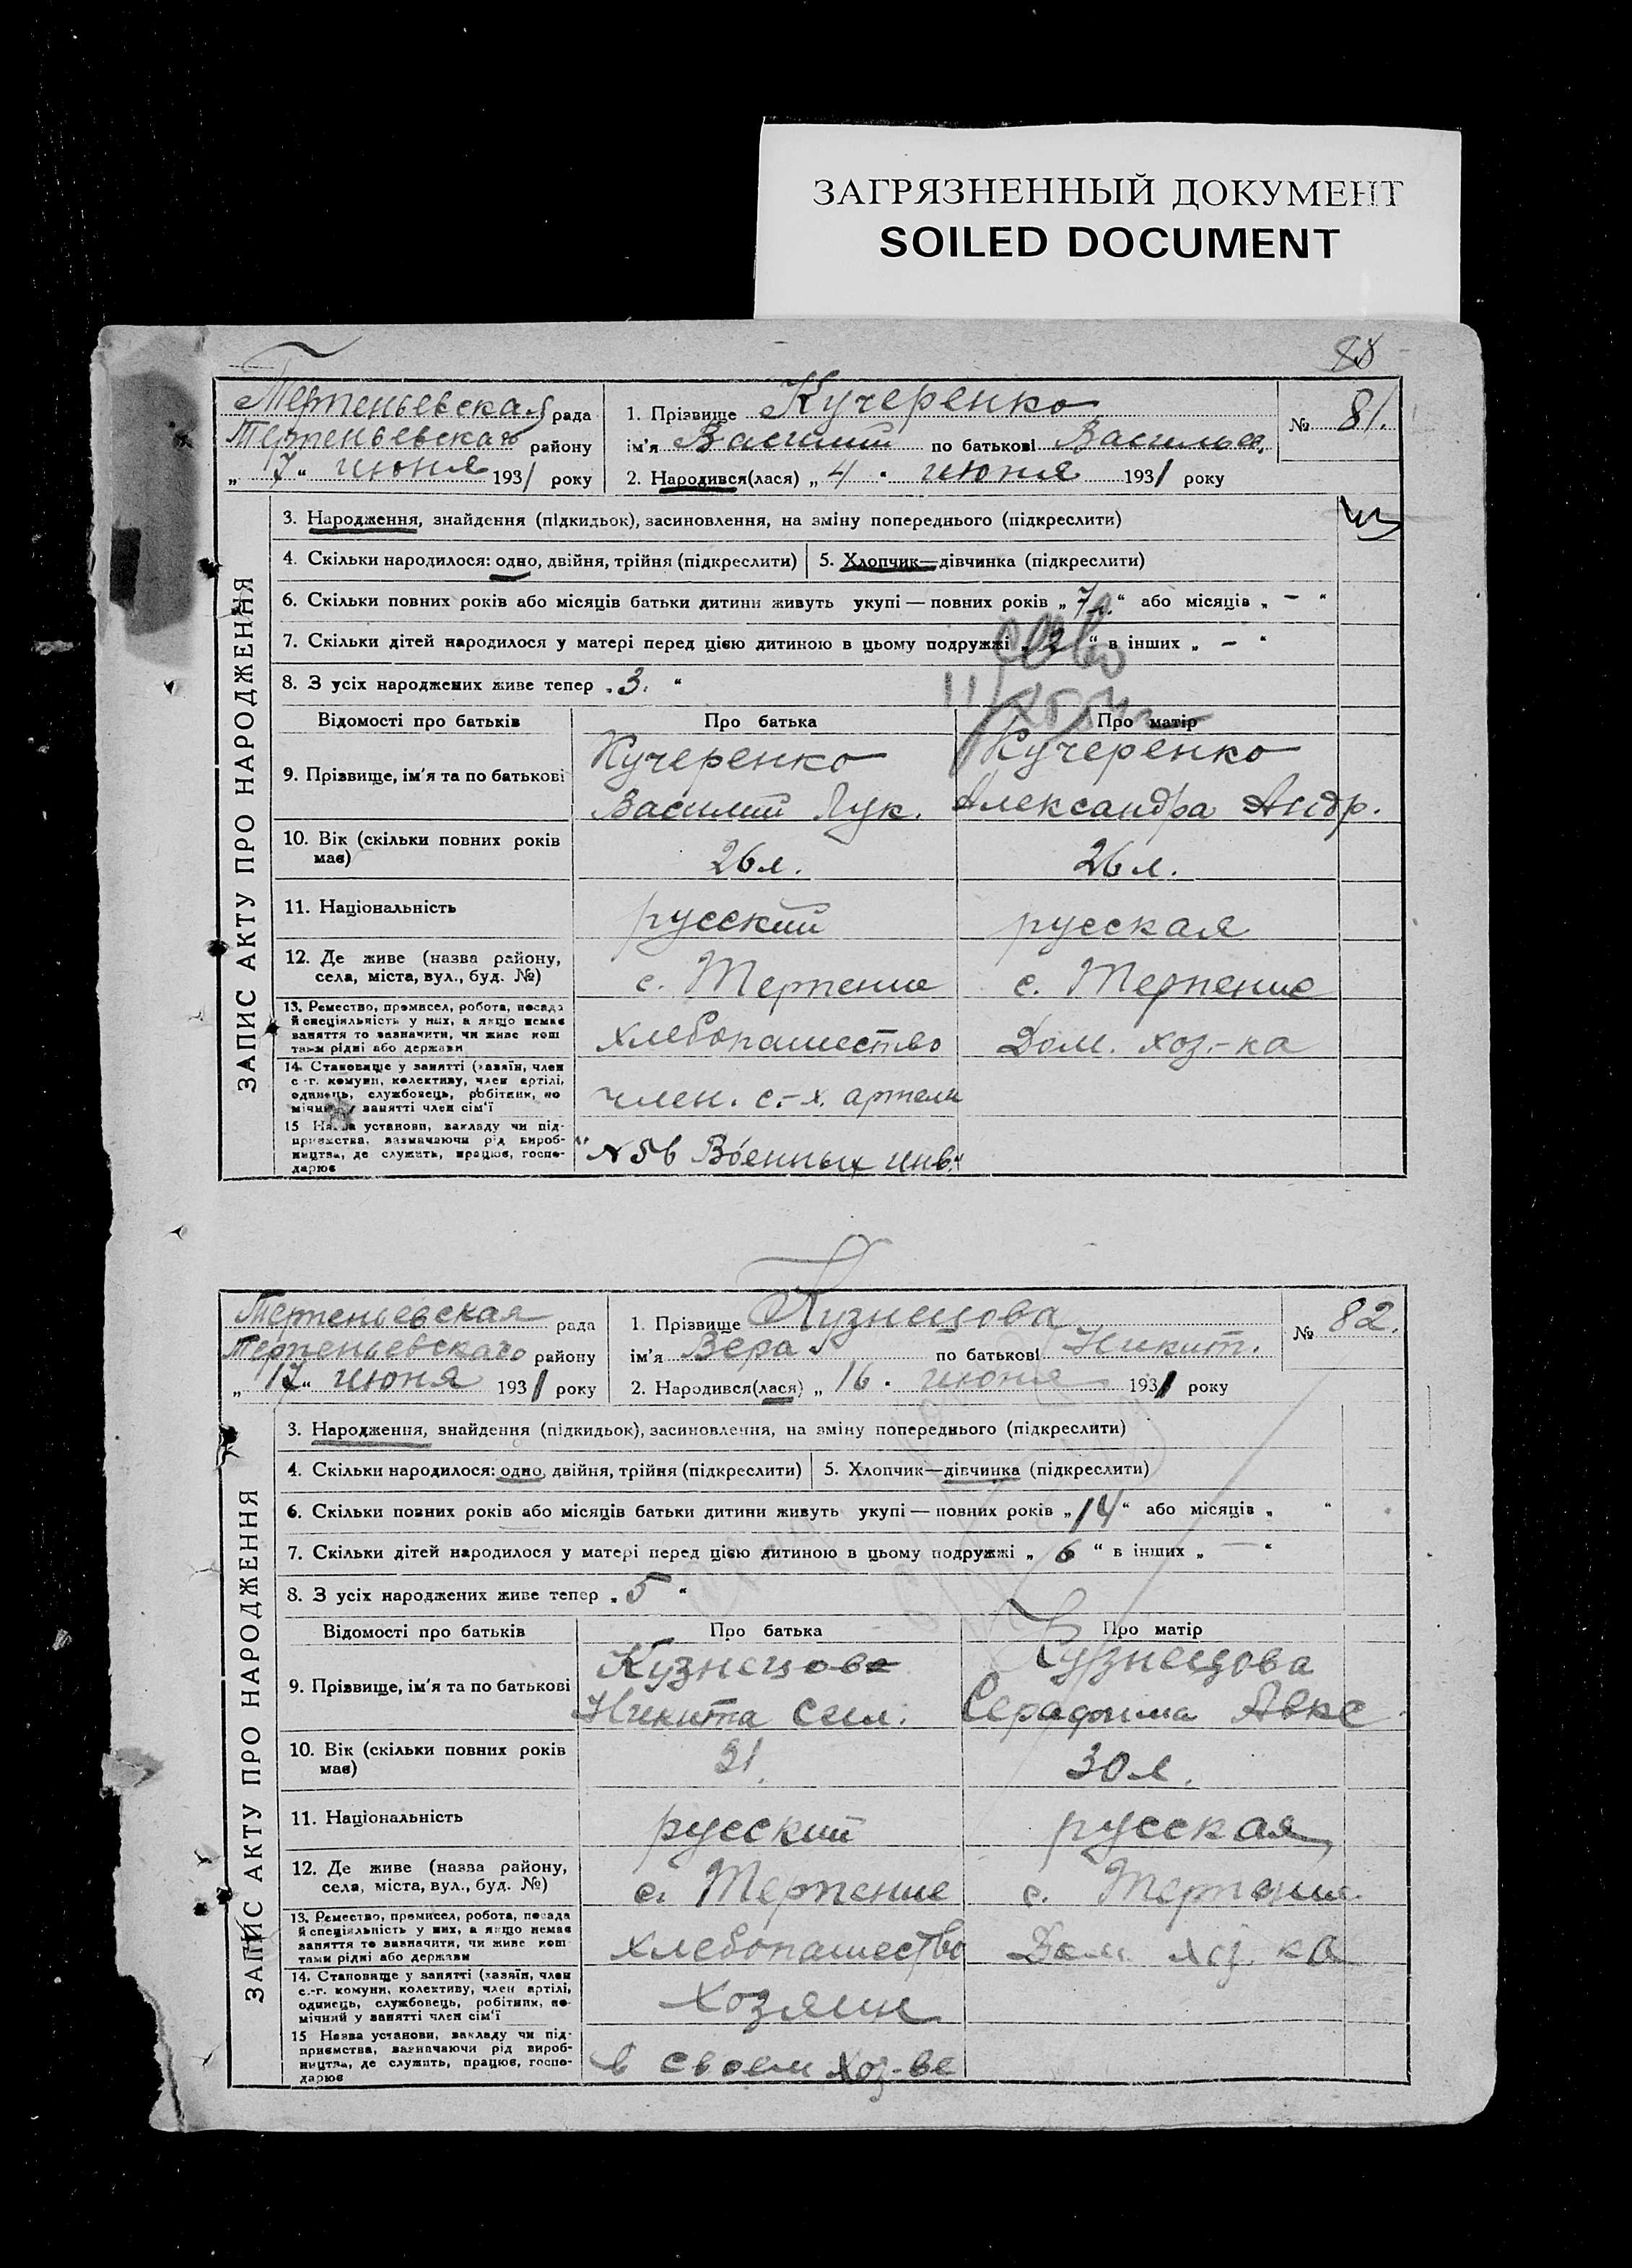 ЗАГРЯЗНЕННЫЙ ДОКУМЕНТ
SOILED DOCUMENT
Терпеньевская рада
Терпеньевскаго району
„ 17 “ июня 1931 року
1. Прізвище Кучеренко
ім'я Василий по батькові Василье.
2. Народився(лася) „ 4 “ июня 1931 року
№ 81.
ЗАПИС АКТУ ПРО НАРОДЖЕННЯ
3. Народження, знайдення (підкидьок), засиновлення, на зміну попереднього (підкреслити)
4. Скільки народилося: одно, двійня, трійня (підкреслити) 5. Хлопчик—дівчинка (підкреслити)
6. Скільки повних років або місяців батьки дитини живуть укупі — повних років „ 7л. “ або місяців „ – “
7. Скільки дітей народилося у матері перед цією дитиною в цьому подружжі „ 2 “ в інших „ – “
8. З усіх народжених живе тепер „ 3. “
Відомості про батьків Про батька Про матір
9. Прізвище, ім'я та по батькові Кучеренко Кучеренко
Василий Лук. Александра Андр.
10. Вік (скільки повних років має) 26 л. 26 л.
11. Національність русский русская
12. Де живе (назва району, с. Терпение с. Терпение
села, міста, вул., буд. №)
13. Ремество, промисел, робота, посада
й спеціяльність у них, а якщо немає
заняття то зазначити, чи живе кош
тами рідні або держави хлебопашество Дом. хоз.-ка
14. Становище у занятті (хазяїн, член
с.-г. комуни, колективу, член артілі,
одинець, службовець, робітник, по
мічний у занятті член сім'ї член. с.-х. артели
15 Назва установи, закладу чи під-
приємства, зазначаючи рід вироб-
ництва, де служить, працює, госпо-
дарює Военных инв."
Терпеньевская рада
Терпеньевскаго району
„ 17 “ июня 1931 року
1. Прізвище Кузнецова
ім'я Вера по батькові Никит.
2. Народився(лася) „ 16 “ июня 1931 року
№ 82.
ЗАПИС АКТУ ПРО НАРОДЖЕННЯ
3. Народження, знайдення (підкидьок), засиновлення, на зміну попереднього (підкреслити)
4. Скільки народилося: одно, двійня, трійня (підкреслити) 5. Хлопчик—дівчинка (підкреслити)
6. Скільки повних років або місяців батьки дитини живуть укупі — повних років „ 14 “ або місяців „ “
7. Скільки дітей народилося у матері перед цією дитиною в цьому подружжі „ 6 “ в інших „ — “
8. З усіх народжених живе тепер „ 5 “
Відомості про батьків Про батька Про матір
9. Прізвище, ім'я та по батькові Кузнецов Кузнецова
Никита Сем. Серафима Авкс
10. Вік (скільки повних років має) 31. 30 л.
11. Національність русский русская
12. Де живе (назва району, с. Терпение с. Терпение
села, міста, вул., буд. №)
13. Ремество, промисел, робота, посада
й спеціяльність у них, а якщо немає
заняття то зазначити, чи живе кош
тами рідні або держави хлебопашество Дом. хоз. ка
14. Становище у занятті (хазяїн, член
с.-г. комуни, колективу, член артілі,
одинець, службовець, робітник, по-
мічний у занятті член сім'ї хозяин
15 Назва установи, закладу чи під-
приємства, зазначаючи рід вироб-
ництва, де служить, працює, госпо-
дарює в своем хоз-ве